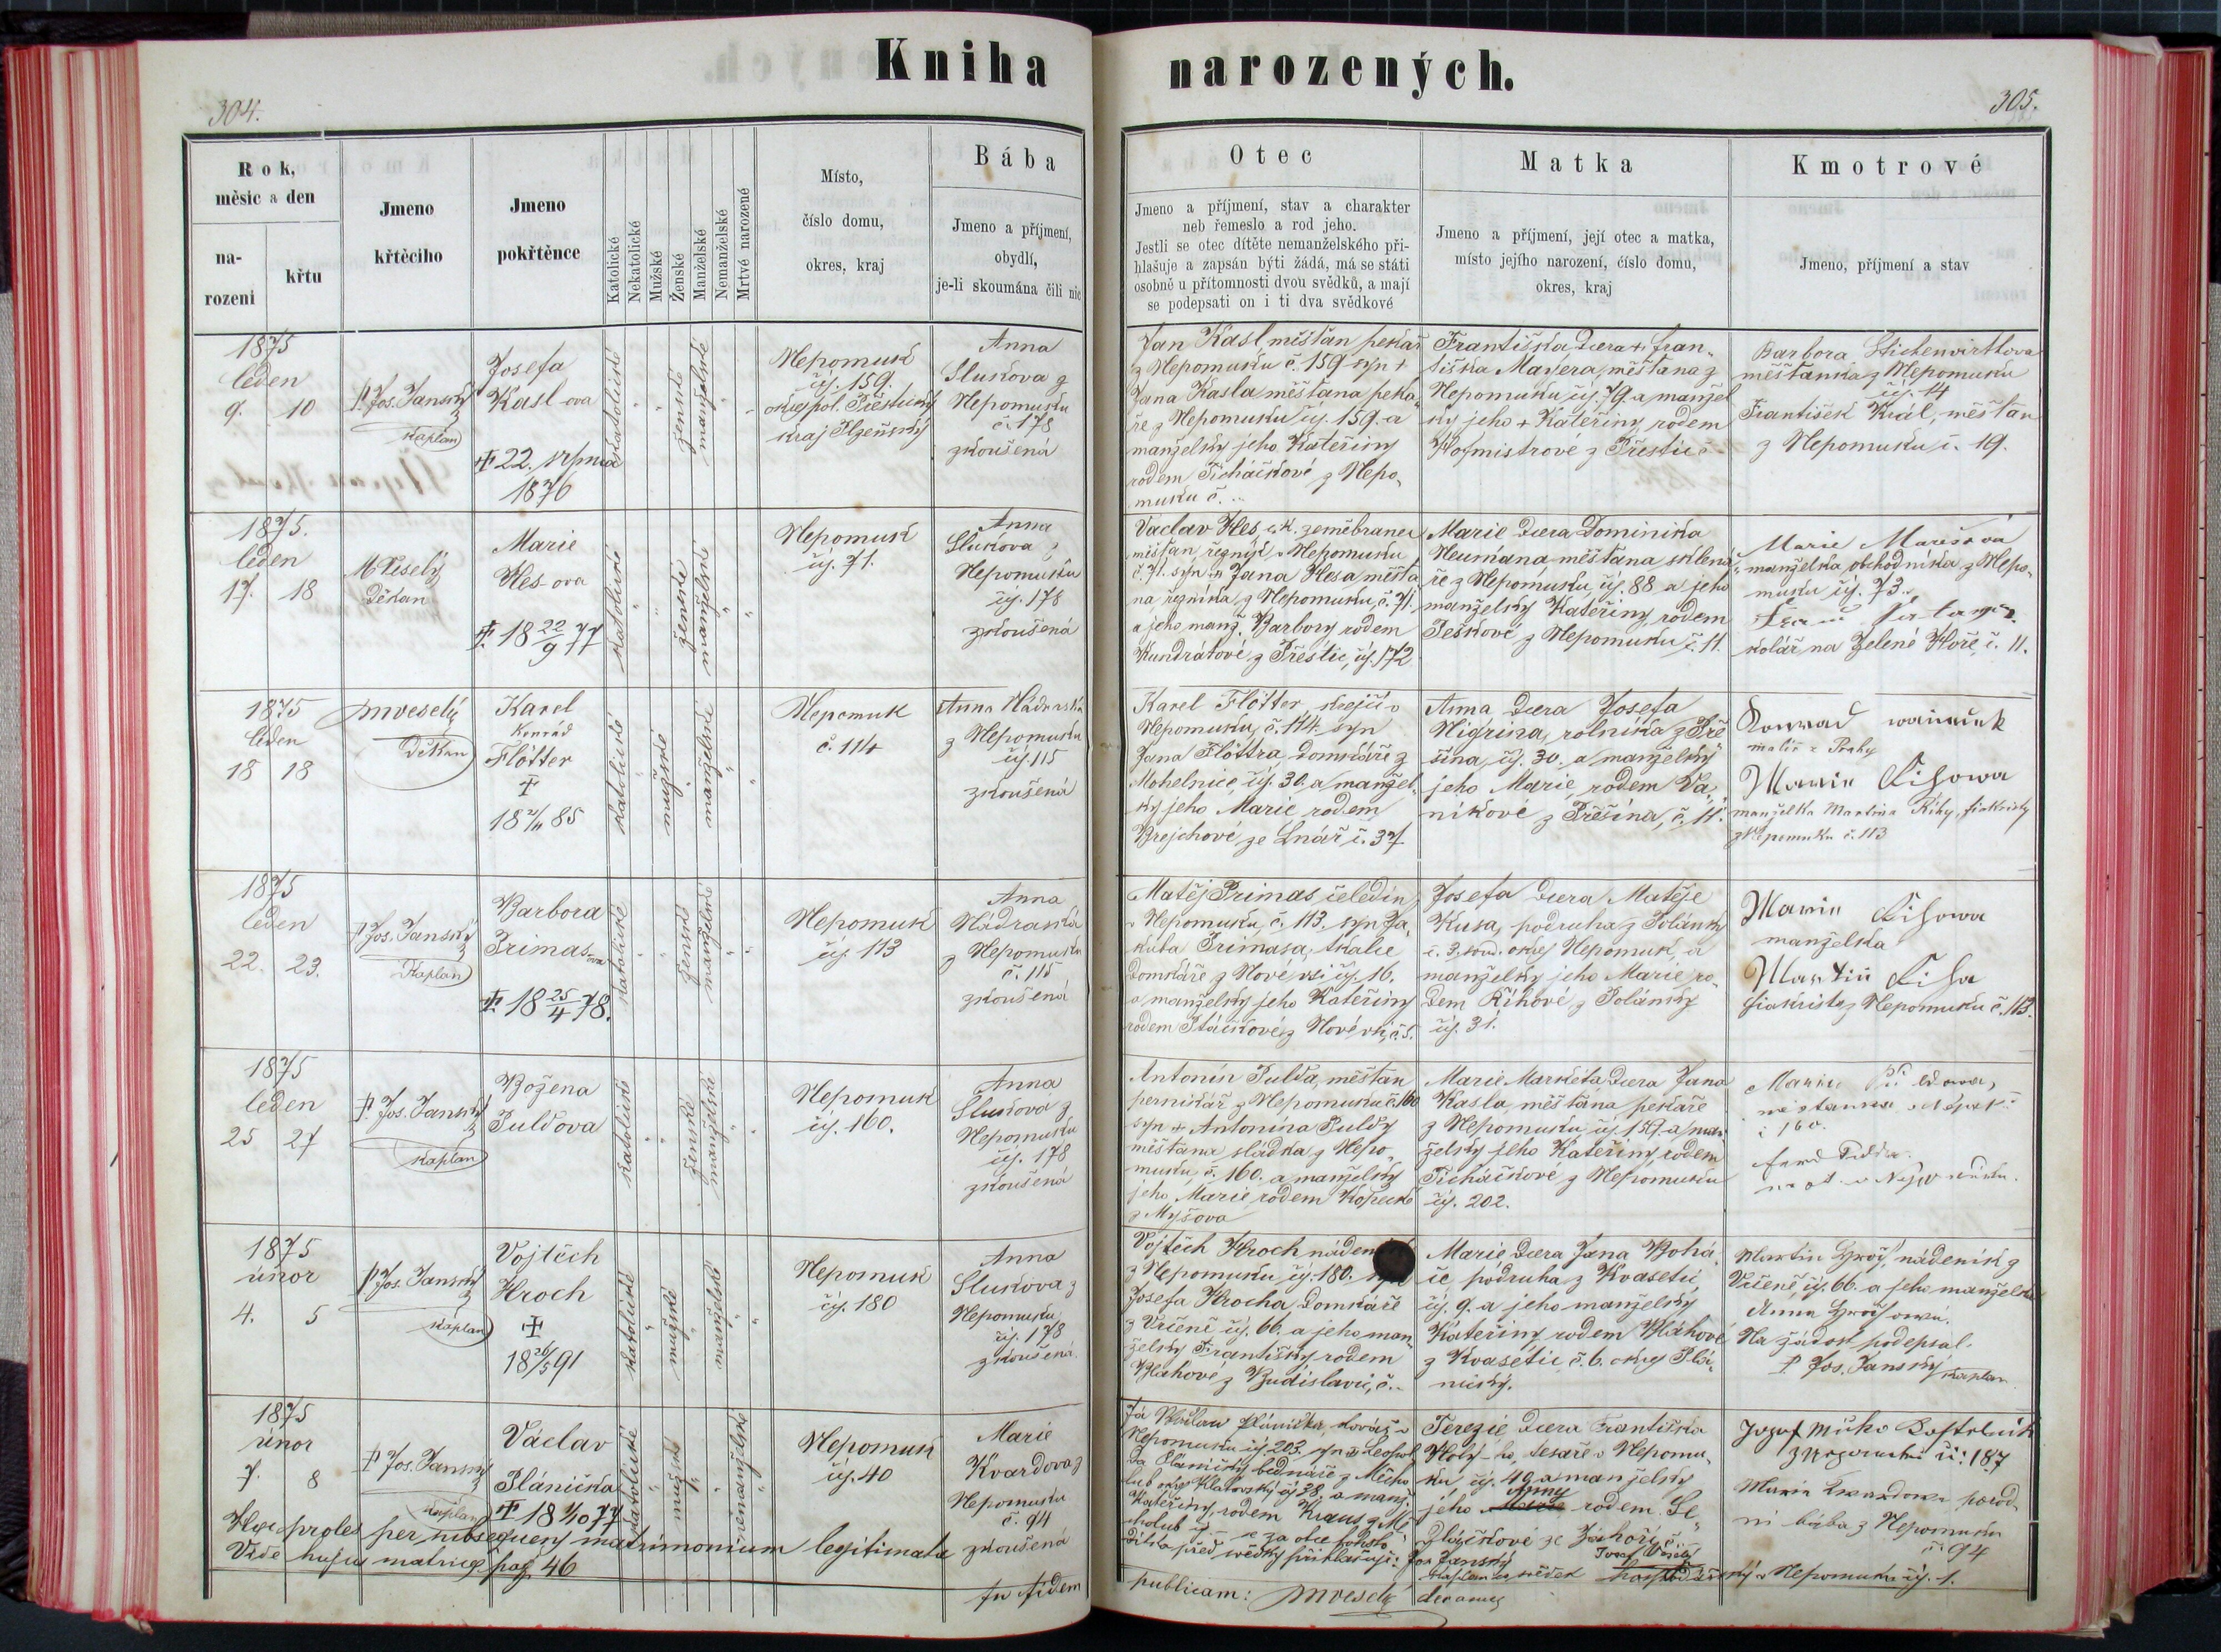 Kniha narozených.
304.
305.
Rok,
měsíc a den
na-
rození
křtu
Jmeno
křtěcího
Jmeno
pokřtěnce
Katolické
Nekatolické
Mužské
Ženské
Manželské
Nemanželské
Mrtvé narozené
Místo,
číslo domu,
okres, kraj
Bába
Jmeno a příjmení,
obydlí,
je-li skoumána čili nic
Otec
Jmeno a příjmení, stav a charakter
neb řemeslo a rod jeho.
Jestli se otec dítěte nemanželského při-
hlašuje a zapsán býti žádá, má se státi
osobně u přítomnosti dvou svědků, a mají
se podepsati on i ti dva svědkové
Matka
Jmeno a příjmení, její otec a matka,
místo jejího narození, číslo domu,
okres, kraj
Kmotrové
Jmeno, příjmení a stav
1875
leden
9. 10
P. Jos. Janský
kaplan
Josefa
Kasl-ova
✝ 22. srpna
1876
katolické
ženské
manželské
Nepomuk
čj. 159.
okr. pol. Přeštický
kraj Plzeňský
Anna
Slukova z
Nepomuku
č. 178
zkoušená
Jan Kasl měšťan pekař
z Nepomuku č. 159 syn +
Jana Kasla měšťana peka-
ře z Nepomuku čj. 159. a
manželky jeho Kateřiny
rodem Ticháčkové z Nepo-
muku č. ..
Františka dcera + Fran-
tiška Mayera, měšťana z
Nepomuku čj. 79. a manžel
ky jeho + Kateřiny rodem
Hofmistrové z Přeštic č.
Barbora
měšťanka z Nepomuku
čj. 14
František Král, měšťan
z Nepomuku č. 19.
1875.
leden
17. 18
MVeselý
Děkan
Marie
Hes-ova
✝ 18 22/9 77
katolické
ženské
manželské
Nepomuk
čj. 71.
Anna
Slukova z
Nepomuku
čj. 178
zkoušená
Vaclav Hes, c.k. zeměbranec
měšťan řezník v Nepomuku
č. 71. syn + Jana Hesa měšťa
na, řezníka z Nepomuku, č. 71.
a jeho manž. Barbory rodem
Kundrátové z Přeštic, čj. 172
Marie dcera Dominika
Neumana, měšťana sklená-
ře z Nepomuku čj. 88 a jeho
manželky Kateřiny, rodem
Peškové z Nepomuku č. 11.
Marie Marešová
manželka obchodníka z Nepo-
muku čj. 73.
kolář na Zelené Hoře, č. 11.
1875
leden
18 18
MVeselý
Děkan
Karel
Konrád
Flötter
✝
18 85
katolické
mužské
manželské
Nepomuk
č. 114
Anna Nádraská
z Nepomuku
čj. 115
zkoušená
Karel Flötter, krejčí v
Nepomuku, č. 114. syn
Jana Flöttra, domkáře z
Mohelnice, čj. 30. a manžel-
ky jeho Marie rodem
Brejchové ze Lnář č. 37
Anna dcera Josefa
Nigrina, rolníka z Pře-
šína, čj. 30. a manželky
jeho Marie, rodem Va-
níkové z Přešína, č. 11.
malíř z Prahy
Marie Řihowa
manželka Martina Řihy, fiakristy
z Nepomuku č. 113
1875
leden
22. 23.
P. Jos. Janský
Kaplan
Barbora
Primas-ova
✝ 18 25/4 78.
katolické
ženské
manželské
Nepomuk
čj. 113
Anna
Nádraská
z Nepomuku
č. 115
zkoušená
Matěj Primas, čeledín
v Nepomuku, č. 113. syn Ja-
kuba Primasa, tkalce
domkáře z Nové vsi čj. 16.
a manželky jeho Kateřiny
rodem Ptáčkové z Nové vsi, č. 5.
Josefa dcera Matěje
Kusa, podruha z Polánky
č. 3. soud. okres Nepomuk, a
manželky jeho Marie ro-
dem Říhové z Polánky
čj. 31.
Marie Řihowa
manželka
Martin Řiha
fiakrista z Nepomuku č. 113.
1875
leden
25 27
P. Jos. Janský
kaplan
Božena
Pulďova
katolické
ženské
manželské
Nepomuk
čj. 160.
Anna
Slukova z
Nepomuku
čj. 178
zkoušená
Antonín Pulda, měšťan
pernikář z Nepomuku č. 160
syn + Antonína Puldy
měšťana sládka z Nepo-
muku, č. 160. a manželky
jeho Marie, rodem Kopecké
z Myšova
Marie Markéta dcera Jana
Kasla, měšťana pekaře
z Nepomuku čj. 159. a man-
želky jeho Kateřiny, rodem
Ticháčkové z Nepomuku
čj. 202.
č 160.
1875
únor
4. 5
P. Jos. Janský
kaplan
Vojtěch
Hroch
✝
18 91
katolické
mužské
manželské
Nepomuk
čj. 180
Anna
Slukova z
Nepomuku
čj. 178
zkoušená
Vojtěch Hroch náden
z Nepomuku čj. 180. syn
Josefa Hrocha, domkáře
z Vrčeně čj. 66. a jeho man-
želky Františky, rodem
Bláhové z Budislavic, č. -
Marie dcera Jana Bohá-
če, podruha z Kvasetic,
čj. 9. a jeho manželky
Kateřiny, rodem Bláhové
z Kvasetic č. 6. okres Plá-
nický.
Martin nádeník z
Vrčeně, čj. 66. a jeho manželka
Anna
Na žádost podepsal.
P. Jos. Janský, kaplan
1875
únor
7. 8
P. Jos. Janský
Kaplan
Václav
Plánička
✝ 18 77
katolické
mužské
nemanželské
Nepomuk
čj. 40
Marie
Kvardova z
Nepomuku
č. 94
zkoušená
Já Václav Plánička, kovář v
Nepomuku čj. 203. syn Leopol
da Planičky bednáře z Měcho-
lub okr. Klatovský čj 38. a manž.
Kateřiny, rodem Kraus z Mě-
cholub se za otce tohoto
dítka před svědky přihlašuje:
Terezie dcera Františka
Holý-ho, tesaře v Nepomu-
ku, čj. 49 a manželky
Anny
jeho rodem Se-
dláčkové ze Záhoří, č.
Jos. Janský
kaplan co svědek
Josef Míko
z Nepomuku č: 187
Marie Kwardowa porod-
ní bába z Nepomuku
č. 94
v Nepomuku čj. 1.
Haec proles per subsequens matrimonium legitimata
Vide hujus matricae pag. 46
In fidem
publicam: MVeselý decanus